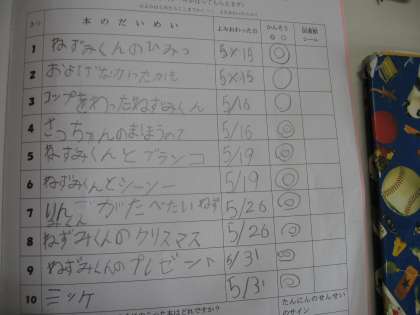 さつ 本のだいめい よみおわった日 かんそう 図書館シール
1 ねずみくんのひみつ 5/15 ◎
2 およげなかったかも 5/15 ○
3 コップをわったねずみくん 5/16 ○
4 さっちゃんのまほうの 5/16 ◎
5 ねずみくんとブランコ 5/19 ◎
6 ねずみくんとシーソー 5/19 ◎
7 りんごがたべたいねず 5/26 ◎
8 ねずみくんのクリスマス 5/26 ◎
9 ねずみくんのプレゼント 5/31 ◎
10 ミッケ 5/31 ◎
たんにんのせんせい
のサイン